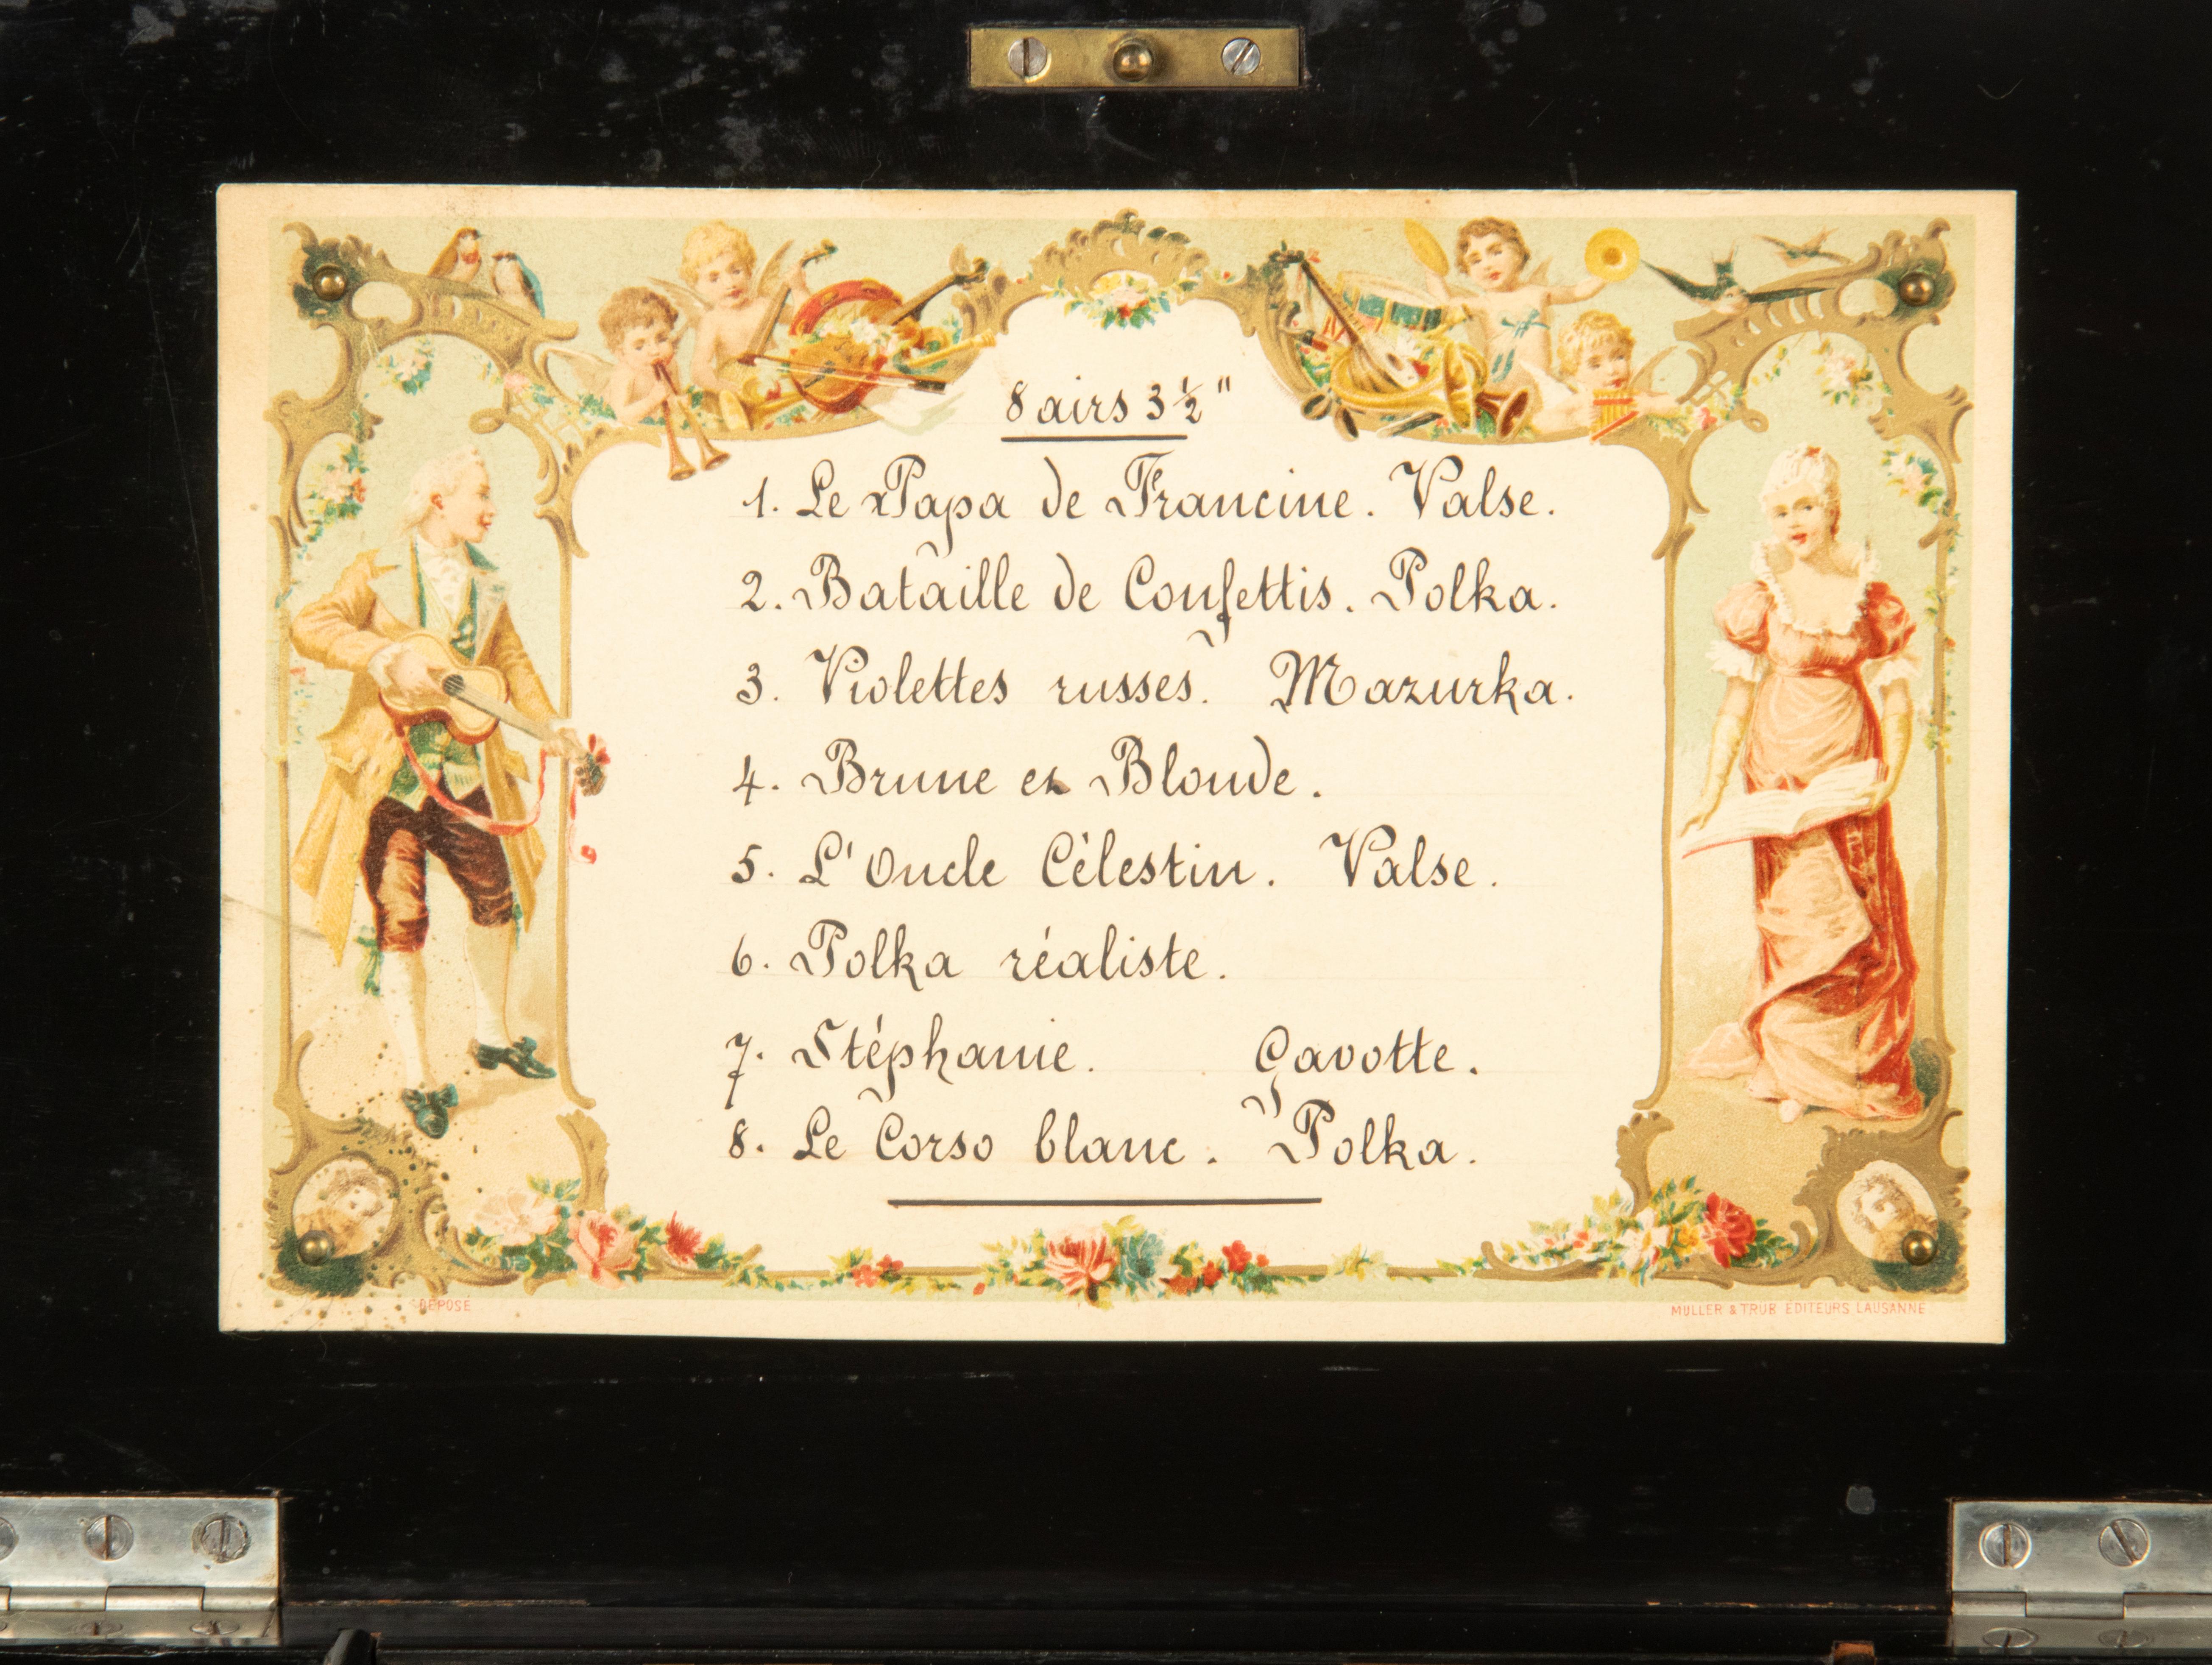 8 airs 3 ½"
1. Le Papa de Francine. Valse.
2. Bataille de Confettis. Polka.
3. Violettes russes. Mazurka.
4. Brune et Blonde.
5. L'Oncle Célestin. Valse.
6. Polka réaliste.
7. Stéphanie. Gavotte.
8. Le Corso blanc. Polka.
DÉPOSÉ
MULLER & TRUB EDITEURS LAUSANNE